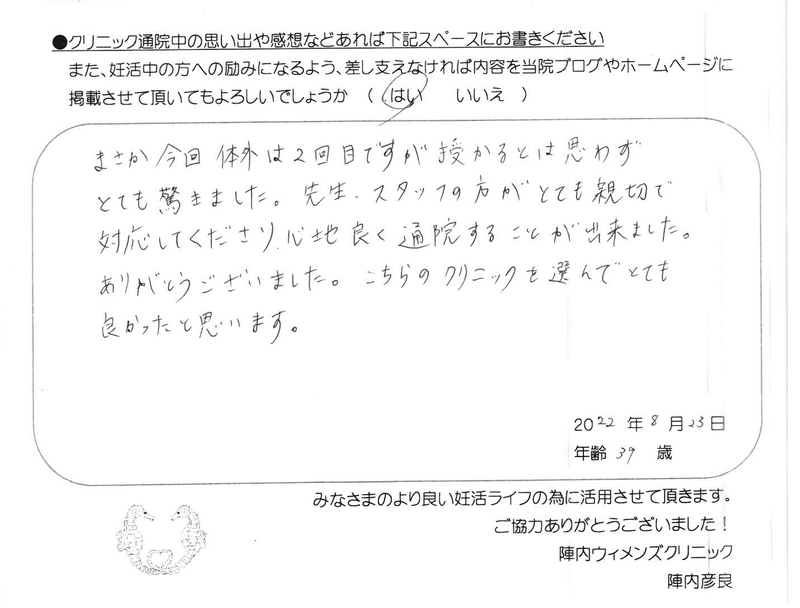 ●クリニック通院中の思い出や感想などあれば下記スペースにお書きください
また、妊活中の方への励みになるよう、差し支えなければ内容を当院ブログやホームページに
掲載させて頂いてもよろしいでしょうか （ はい　いいえ ）
まさか今回 体外は2回目ですが授かるとは思わず
とても驚きました。先生、スタッフの方がとても親切で
対応してくださり、心地良く通院することが出来ました。
ありがとうございました。こちらのクリニックを選んでとても
良かったと思います。
2022 年 8 月 23 日
年齢 39 歳
みなさまのより良い妊活ライフの為に活用させて頂きます。
ご協力ありがとうございました！
陣内ウィメンズクリニック
陣内彦良